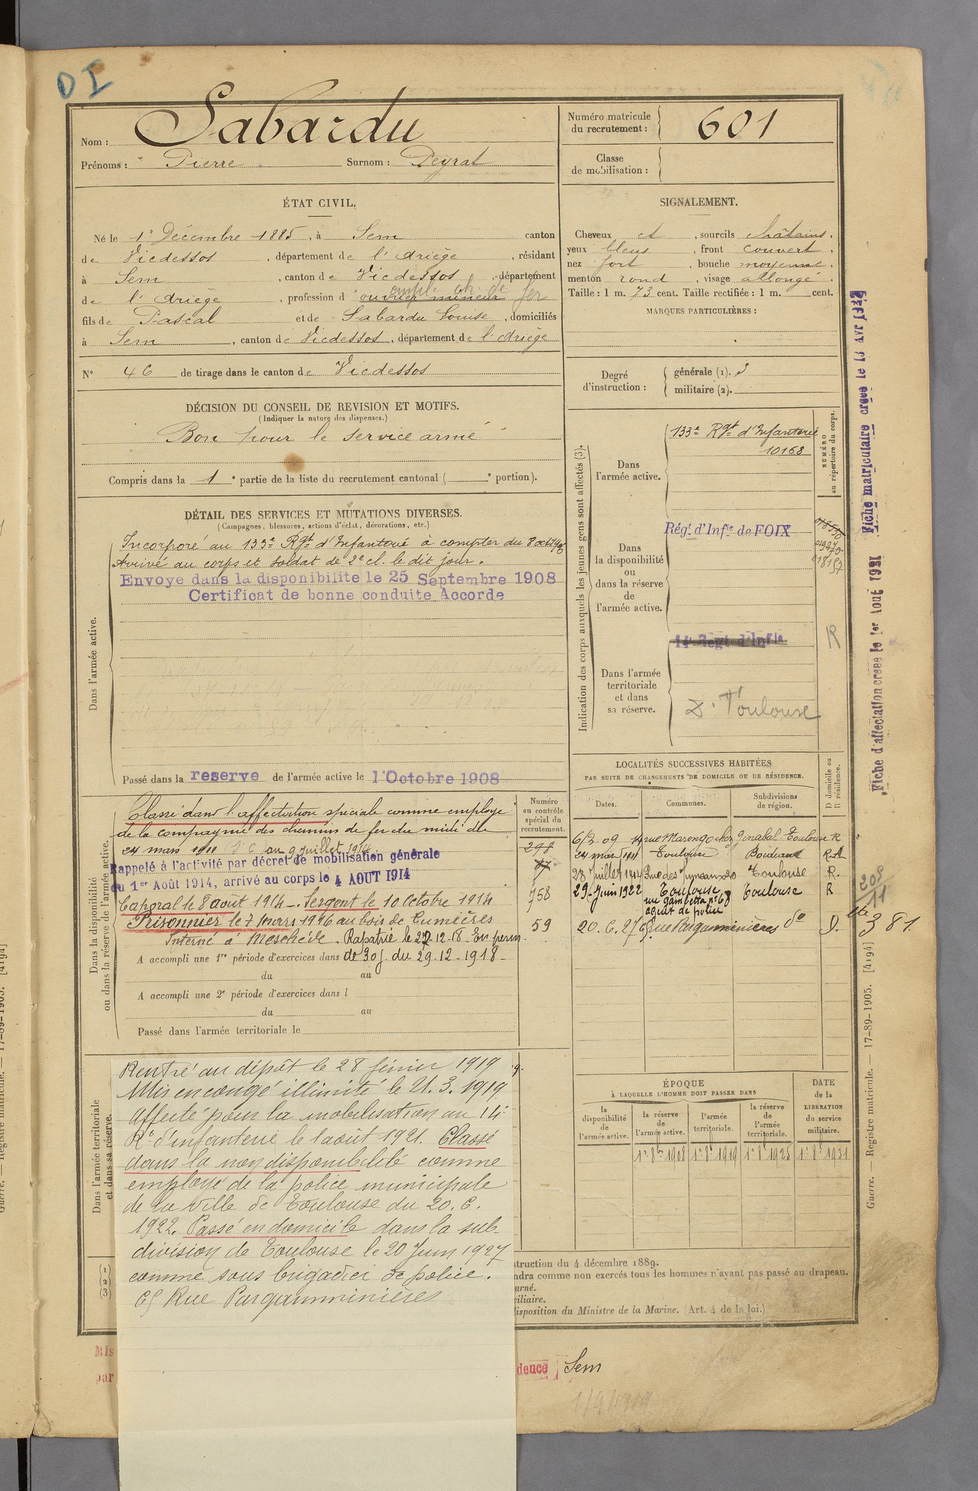 DI
Nom : Sabardu
Prénoms : Pierre Surnom : Peyrat
Numéro matricule du recrutement : 601
Classe de mobilisation :
ÉTAT CIVIL.
Né le 1er Décembre 1885, à Sem canton
de Vicdessos, département de l'Ariège, résidant
à Sem, canton de Vicdessos, département
de l'Ariège, profession d'ouvrier mineur
emplé ch. de fer
fils de Pascal et de Sabardu Louise, domiciliés
à Sem, canton de Vicdessos, département de l'Ariège
N° 46 de tirage dans le canton de Vicdessos
SIGNALEMENT.
Cheveux et, sourcils châtains.
yeux bleus, front couvert.
nez fort, bouche moyenne.
menton rond, visage allongé.
Taille : 1 m. 73 cent. Taille rectifiée : 1 m. cent.
MARQUES PARTICULIÈRES :
Degré d'instruction : générale (1). 3
militaire (2).
DÉCISION DU CONSEIL DE REVISION ET MOTIFS.
(Indiquer la nature des dispenses.)
Bon pour le service armé
Compris dans la 1e partie de la liste du recrutement cantonal ( e portion).
DÉTAIL DES SERVICES ET MUTATIONS DIVERSES.
(Campagnes, blessures, actions d'éclat, décorations, etc.)
Dans l'armée active.
Incorporé au 133e Rgt d'Infanterie à compter du 8 oct 1906
Arrivé au corps et soldat de 2e cl. le dit jour.
Envoyé dans la disponibilité le 25 Septembre 1908
Certificat de bonne conduite Accordé
Passé dans la réserve de l'armée active le 1er Octobre 1908
Indication des corps auxquels les jeunes gens sont affectés (3).
NUMÉRO au répertoire du corps.
Dans l'armée active.
133e Rgt d'Infanterie
10168
Dans la disponibilité ou dans la réserve de l'armée active.
Régt d'Infie de FOIX
Dans l'armée territoriale et dans sa réserve.
14e Regt d'Infie
R
Dt Toulouse
Fiche matriculaire créée le 13 Avr 1942
Fiche d'affectation créée le 1er Aout 1921
Dans la disponibilité ou dans la réserve de l'armée active.
Classé dans l'affectation spéciale comme employé
de la compagnie des chemins de fer du midi du
24 mars 1911 au 9 juillet 1914
Rappelé à l'activité par décret de mobilisation générale
du 1er Août 1914, arrivé au corps le 4 AOUT 1914
Caporal le 8 aout 1914 - Sergent le 10 octobre 1914
Prisonnier le 7 Mars 1916 au bois de Cumières
Interné à Meschède. Rapatrié le 27-12-18. En perm
A accompli une 1re période d'exercices dans de 30 j. du 29-12-1918-
du au
A accompli une 2e période d'exercices dans l
du au
Passé dans l'armée territoriale le
Numéro au contrôle spécial du recrutement.
758
59
LOCALITÉS SUCCESSIVES HABITÉES
PAR SUITE DE CHANGEMENTS DE DOMICILE OU DE RÉSIDENCE.
Dates. Communes. Subdivisions de région. D domicile ou R résidence.
6/2-09 4 rue Marengo chez Toulouse R
24 mars 1911 Toulouse R
28 Juillet 1914 Toulouse R.
29-Juin 1922 Toulouse Toulouse R
rue Gambetta n° 68
agent de police
20.6.27 65 rue Pargaminières do D.
208
11
381
Dans l'armée territoriale et dans sa réserve.
Rentré au dépôt le 28 février 1919
Mis en congé illimité le 21.3.1919
Affecté pour la mobilisation au 14e
Rt d'infanterie le 1 août 1921. Classé
dans la non disponibilité comme
employé de la police municipale
de la ville de Toulouse du 20.6.
1922. Passé en domicile dans la sub-
division de Toulouse le 20 Juin 1927
comme sous brigadier de police.
65 Rue Pargaminières
ÉPOQUE
À LAQUELLE L'HOMME DOIT PASSER DANS
DATE de la LIBÉRATION du service militaire.
la disponibilité de l'armée active.
la réserve de l'armée active.
l'armée territoriale.
la réserve de l'armée territoriale.
(1)
(2)
(3)
struction du 4 décembre 1889.
ndra comme non exercés tous les hommes n'ayant pas passé au drapeau.
urné.
ciliaire.
disposition du Ministre de la Marine. (Art. 4 de la loi.)
Mis
par
dence Sem
Guerre. — Registre matricule. — 17-89-1905. [4194]
Guerre. — Registre matricule. — 17-89-1905. [4194]